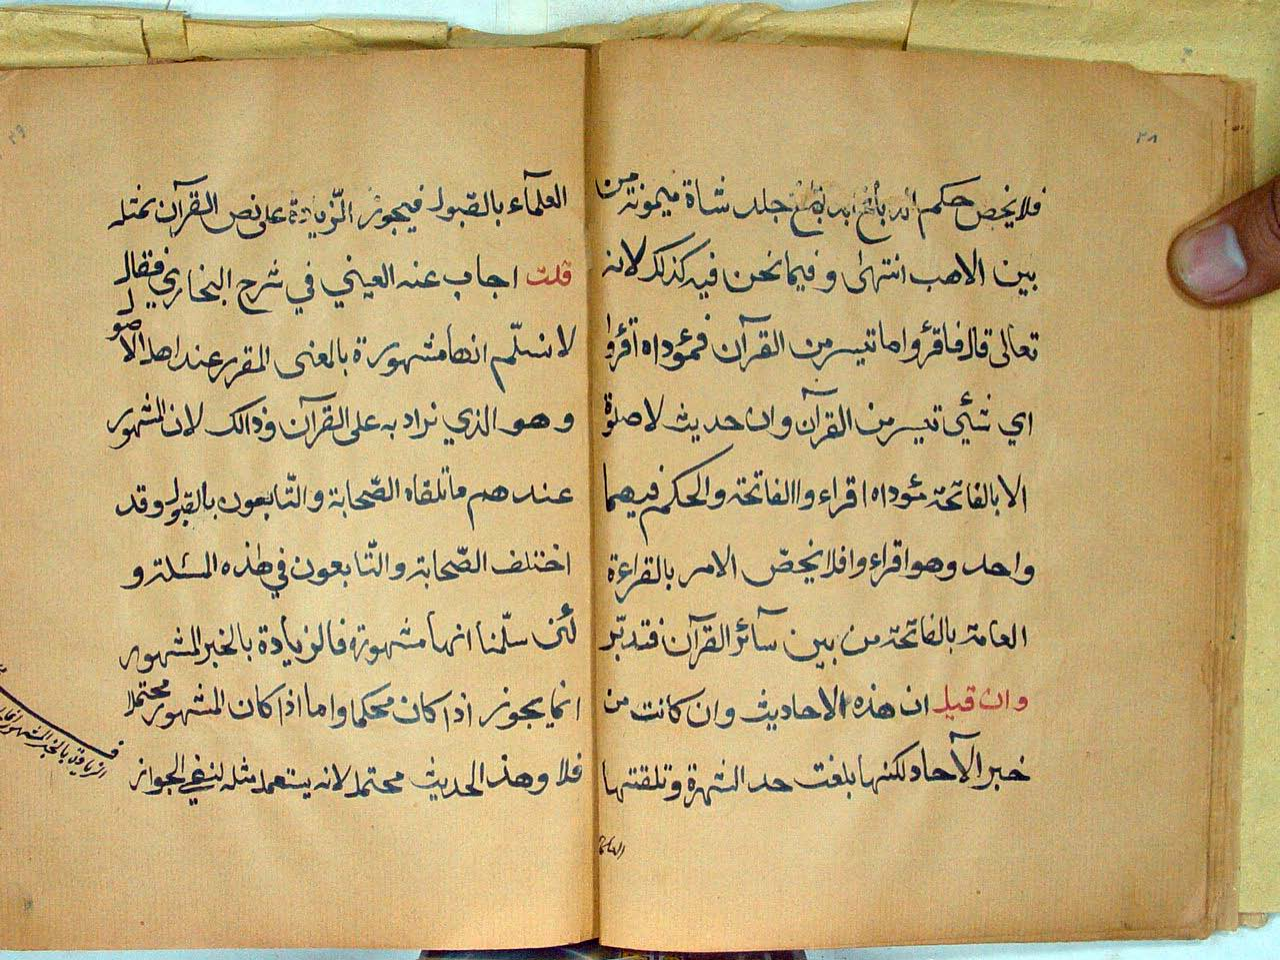 ٣٨
فلا يخص حكم جلد شاة ميمونة من
بين الاهب انتهى وفيما نحن فيه كذلك لانه
تعالى قال فاقرؤا ما تيسر من القرآن فمؤداه اقرؤا
اي شئي تيسر من القرآن وان حديث لا صلوة
الا بالفاتحة مؤداه اقراءوا الفاتحة والحكم فيهما
واحد وهو اقراءوا فلا يخصّ الامر بالقراءة
العامة بالفاتحة من بين سآئر القرآن فتدبّر
وان قيل ان هذه الاحاديث وان كانت من
خبر الآحاد لكنها بلغت حد الشهرة وتلقتها
العلماء
٣٩
العلمآء بالقبول فيجوز الزّيادة على نص القرآن بمثله
قلت اجاب عنه العيني في شرح البخاري فقال
لا نسلّم انها مشهورة بالمعنى المقرر عند اهل الاصول
وهو الذي نراد به على القرآن وذالك لان المشهور
عندهم ما تلقاه الصّحابة والتّابعون بالقبول وقد
اختلف الصّحابة والتّابعون في هذه المسئلة و
لئن سلّمنا انها مشهورة فالزيادة بالخبر المشهور
انما يجوز اذا كان محكما واما اذا كان المشهور محتملا
فلا وهذ الحديث محتمل لانه يستعمل مثله لنفي الجواز
الزيادة بالخبر المشهور انما